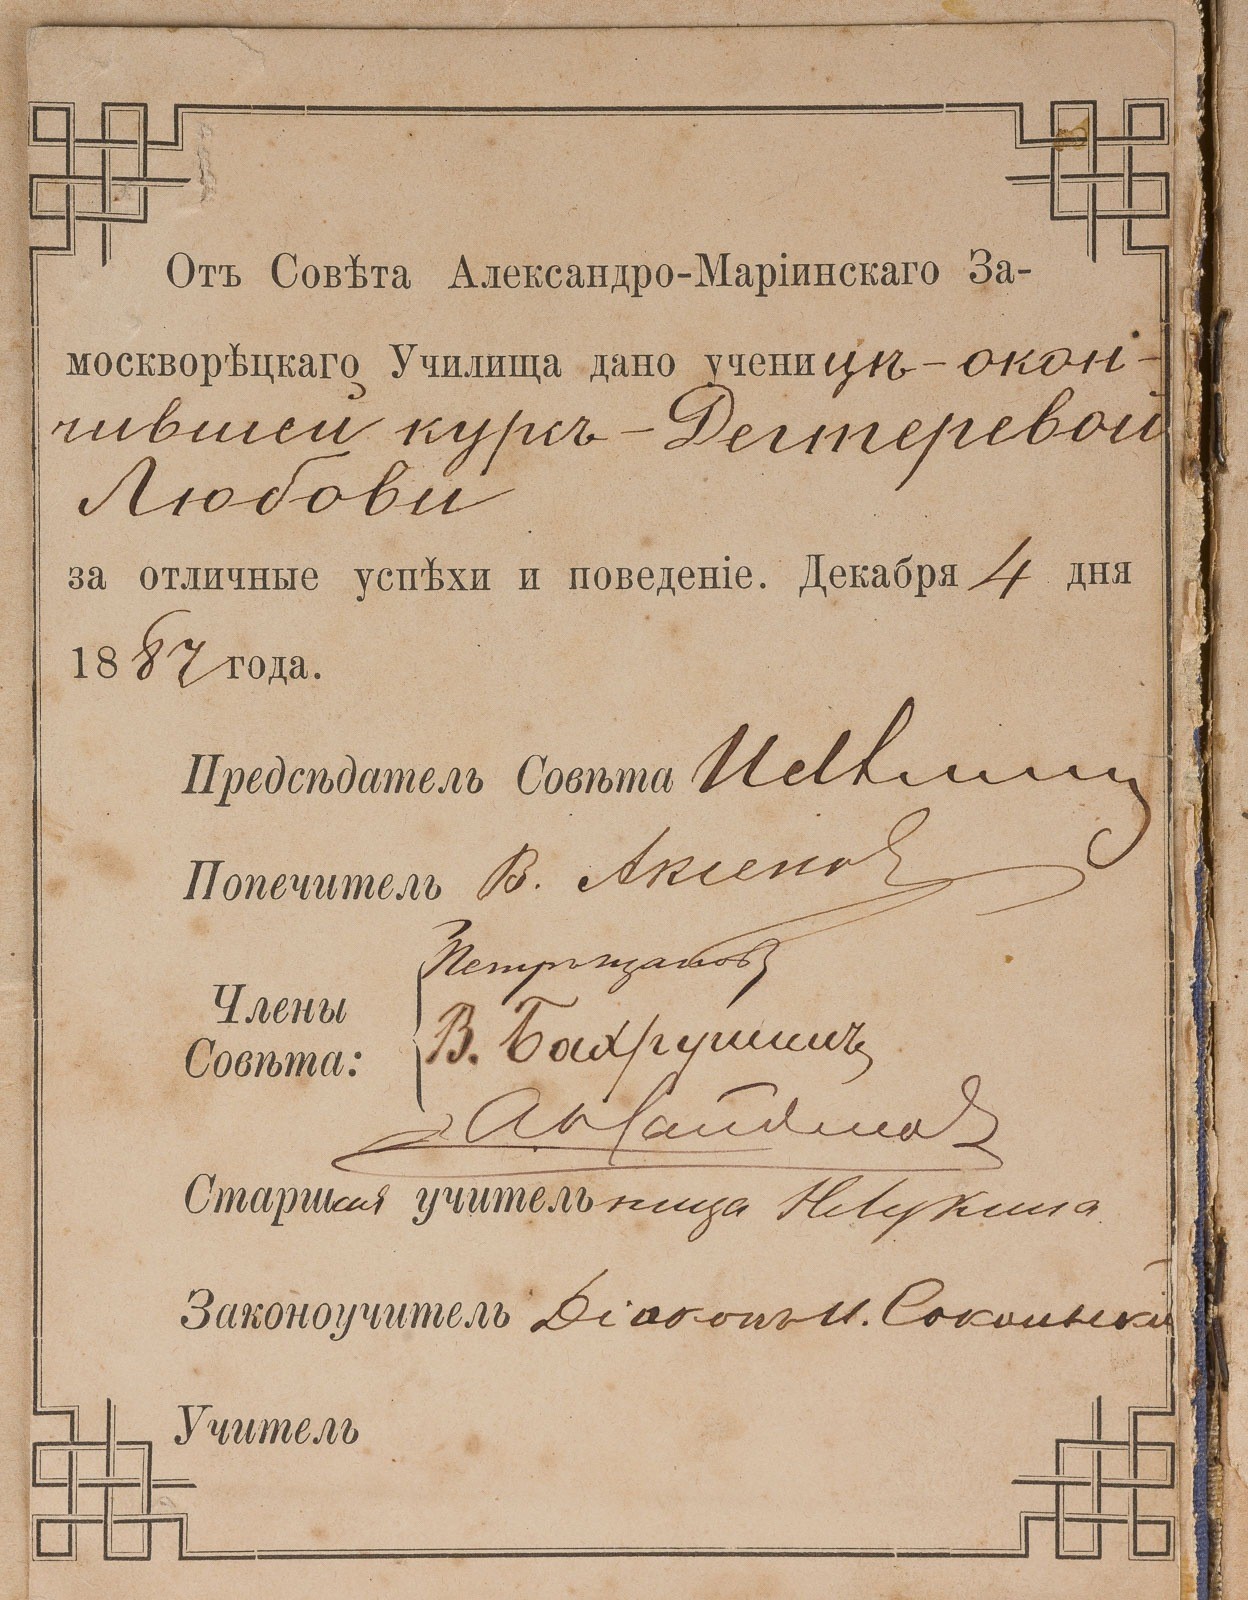 Отъ Совѣта Александро-Маріинскаго За-
москворѣцкаго Училища дано ученицѣ - окон-
чившей курсъ - Дегтеревой
Любови
за отличные успѣхи и поведеніе. Декабря 4 дня
1887 года.
Предсѣдатель Совѣта
Попечитель В. Аксенов
Члены
Совѣта:
В. Бахрушинъ
Старшая учительница Н Лукина
Законоучитель Діаконъ И. Сокольскій
Учитель